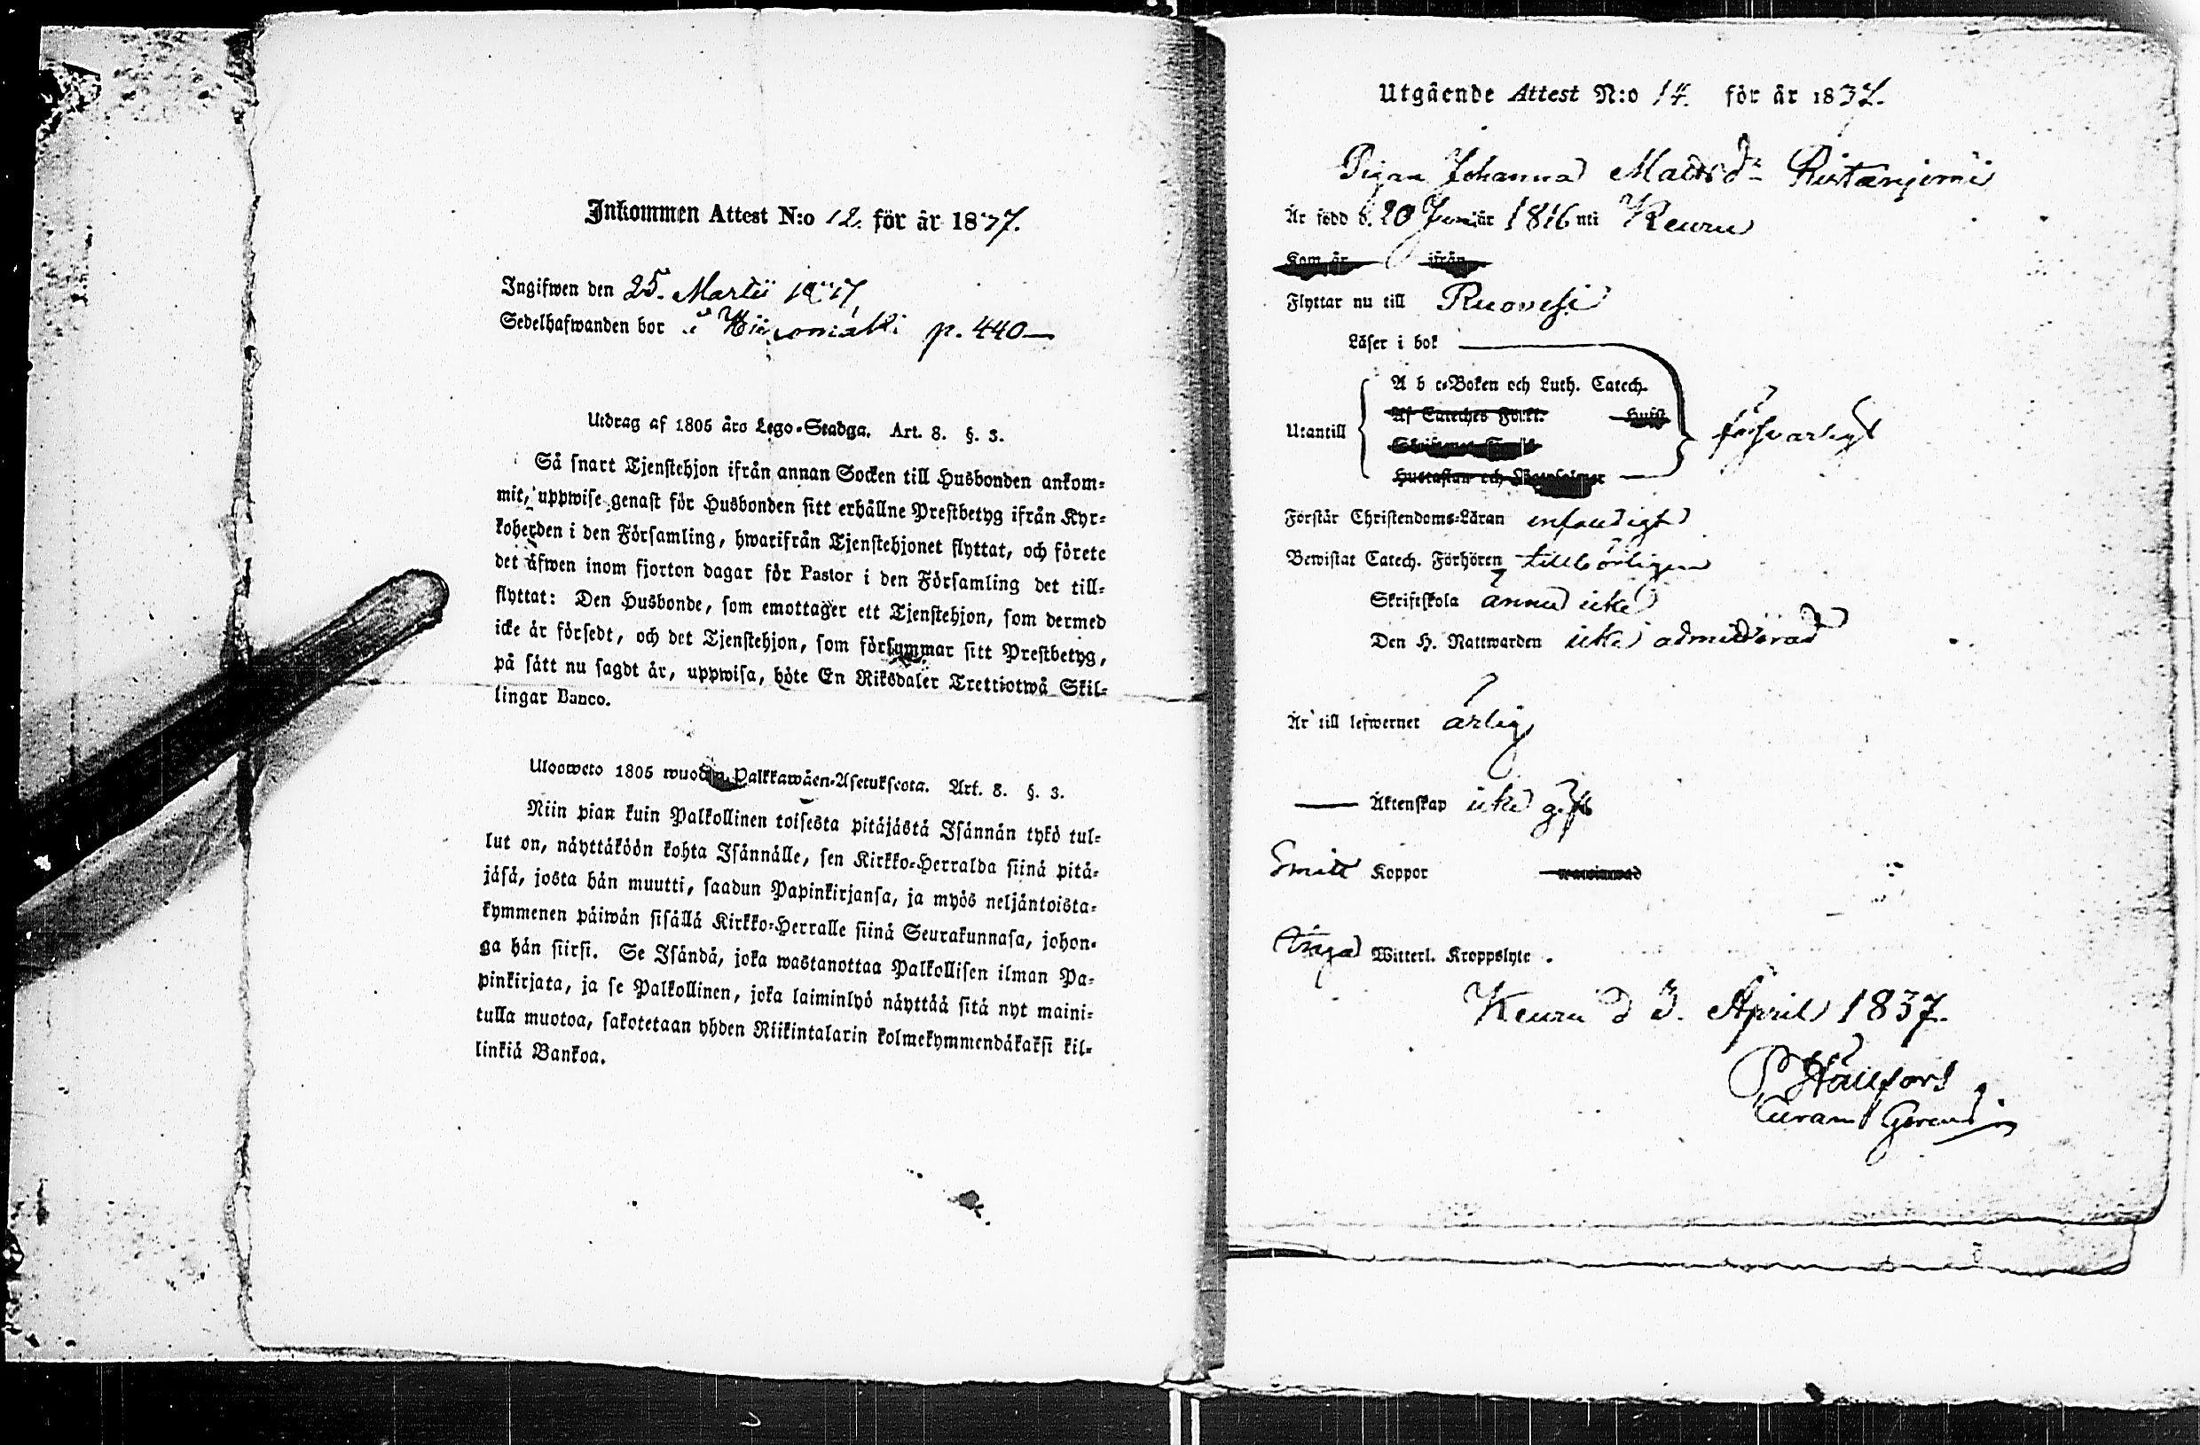 Inkommen Attest N:o 12. för år 1837.
Ingifwen den 25. Martii
Sedelhafwanden bor i p. 440
Utdrag af 1805 års Lego-Stadga. Art. 8. §. 3.
Så snart Tjenstehjon ifrån annan Socken till Husbonden ankom-
mit, uppwise genast för Husbonden sitt erhållne Prestbetyg ifrån Kyr-
koherden i den Församling, hwarifrån Tjenstehjonet flyttat, och förete
det äfwen inom fjorton dagar för Pastor i den Församling det till-
flyttat: Den Husbonde, som emottager ett Tjenstehjon, som dermed
icke är försedt, och det Tjenstehjon, som försummar sitt Prestbetyg,
på sätt nu sagdt är, uppwisa, böte En Riksdaler Trettiotwå Skil-
lingar Banco.
Ulosweto 1805 wuoden Palkkawäen-Asetuksesta. Art. 8. §. 3.
Niin pian kuin Palkollinen toisesta pitäjästä Isännän tykö tul-
lut on, näyttäköön kohta Isännälle, sen Kirkko-Herralda siinä pitä-
jäsä, josta hän muutti, saadun Papinkirjansa, ja myös neljäntoista-
kymmenen päiwän sisällä Kirkko-Herralle siinä Seurakunnasa, johon-
ga hän siirsi. Se Isändä, joka wastanottaa Palkollisen ilman Pa-
pinkirjata, ja se Palkollinen, joka laiminlyö näyttää sitä nyt maini-
tulla muotoa, sakotetaan yhden Riikintalarin kolmekymmendäkaksi kil-
linkiä Bankoa.
Utgående Attest N:o 14. för år 1837.
Pigan Johanna Matsd:r Ristanjemi
Är född d. 20 Jun. år 1816 uti Keuru
Kom år ifrån
Flyttar nu till Ruovesi
Läser i bok
A b c-Boken och Luth. Catech.
Utantill försvarligt
Hustaflan och
Förstår Christendoms-Läran enfaldigt
Bewistat Catech. Förhören tillbörligen
Skriftskola ännu icke
Den H. Nattwarden icke admitterad
Är till lefwernet ärlig
Äktenskap icke gift
Koppor
Inga Witterl. Kroppslyte.
Keuru d 3. April 1837.
P Hällfors